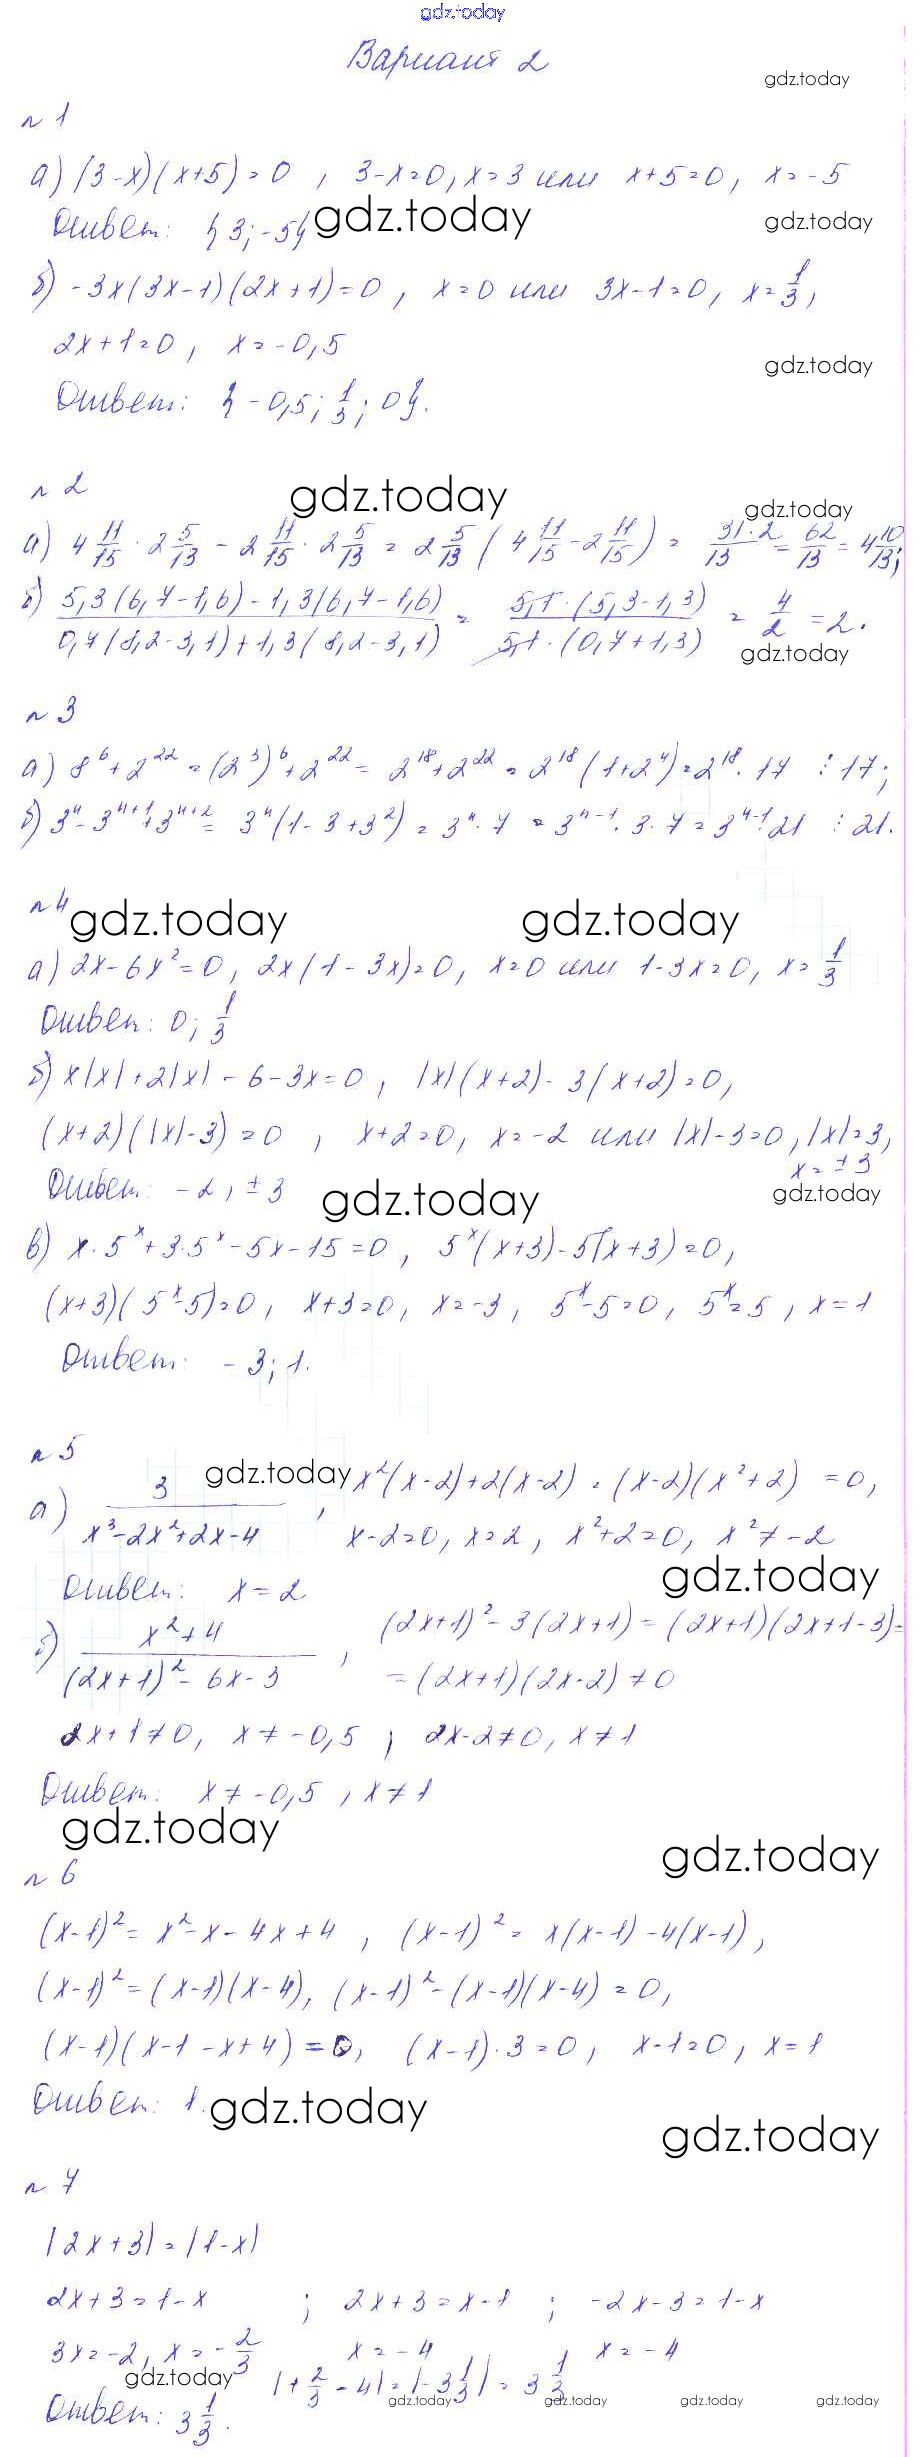 gdz.today
Вариант 2
gdz.today
№ 1
а) (3-x)(x+5)=0, 3-x=0, x=3 или x+5=0, x=-5
Ответ: {3; -5} gdz.today gdz.today
б) -3x(3x-1)(2x+1)=0, x=0 или 3x-1=0, x=1/3,
2x+1=0, x=-0,5
gdz.today
Ответ: {-0,5; 1/3; 0}.
№ 2 gdz.today gdz.today
а) 4 11/15 · 2 5/13 - 2 11/15 · 2 5/13 = 2 5/13 (4 11/15 - 2 11/15) = 31·2/13 = 62/13 = 4 10/13;
б) (5,3(6,7-1,6)-1,3(6,7-1,6))/(0,7(8,2-3,1)+1,3(8,2-3,1)) = (5,1·(5,3-1,3))/(5,1·(0,7+1,3)) = 4/2 = 2.
gdz.today
№ 3
а) 8⁶+2²²=(2³)⁶+2²²=2¹⁸+2²²=2¹⁸(1+2⁴)=2¹⁸·17 ⋮ 17;
б) 3ⁿ-3ⁿ⁺¹+3ⁿ⁺²=3ⁿ(1-3+3²)=3ⁿ·7=3ⁿ⁻¹·3·7=3ⁿ⁻¹·21 ⋮ 21.
№ 4 gdz.today gdz.today
а) 2x-6x²=0, 2x(1-3x)=0, x=0 или 1-3x=0, x=1/3
Ответ: 0; 1/3
б) x|x|+2|x|-6-3x=0, |x|(x+2)-3(x+2)=0,
(x+2)(|x|-3)=0, x+2=0, x=-2 или |x|-3=0, |x|=3,
x=±3
Ответ: -2, ±3 gdz.today gdz.today
в) x·5ˣ+3·5ˣ-5x-15=0, 5ˣ(x+3)-5(x+3)=0,
(x+3)(5ˣ-5)=0, x+3=0, x=-3, 5ˣ-5=0, 5ˣ=5, x=1
Ответ: -3; 1.
№ 5
gdz.today
а) 3/(x³-2x²+2x-4), x²(x-2)+2(x-2)=(x-2)(x²+2)=0,
x-2=0, x=2, x²+2=0, x²≠-2
Ответ: x=2 gdz.today
б) (x²+4)/((2x+1)²-6x-3), (2x+1)²-3(2x+1)=(2x+1)(2x+1-3)=
=(2x+1)(2x-2)≠0
2x+1≠0, x≠-0,5; 2x-2≠0, x≠1
Ответ: x≠-0,5, x≠1
gdz.today gdz.today
№ 6
(x-1)²=x²-x-4x+4, (x-1)²=x(x-1)-4(x-1),
(x-1)²=(x-1)(x-4), (x-1)²-(x-1)(x-4)=0,
(x-1)(x-1-x+4)=0, (x-1)·3=0, x-1=0, x=1
Ответ: 1. gdz.today gdz.today
№ 7
|2x+3|=|1-x|
2x+3=1-x ; 2x+3=x-1 ; -2x-3=1-x
3x=-2, x=-2/3 x=-4 x=-4
gdz.today |+2/3-4|=|-3 1/3|=3 1/3
Ответ: 3 1/3. gdz.today gdz.today gdz.today gdz.today